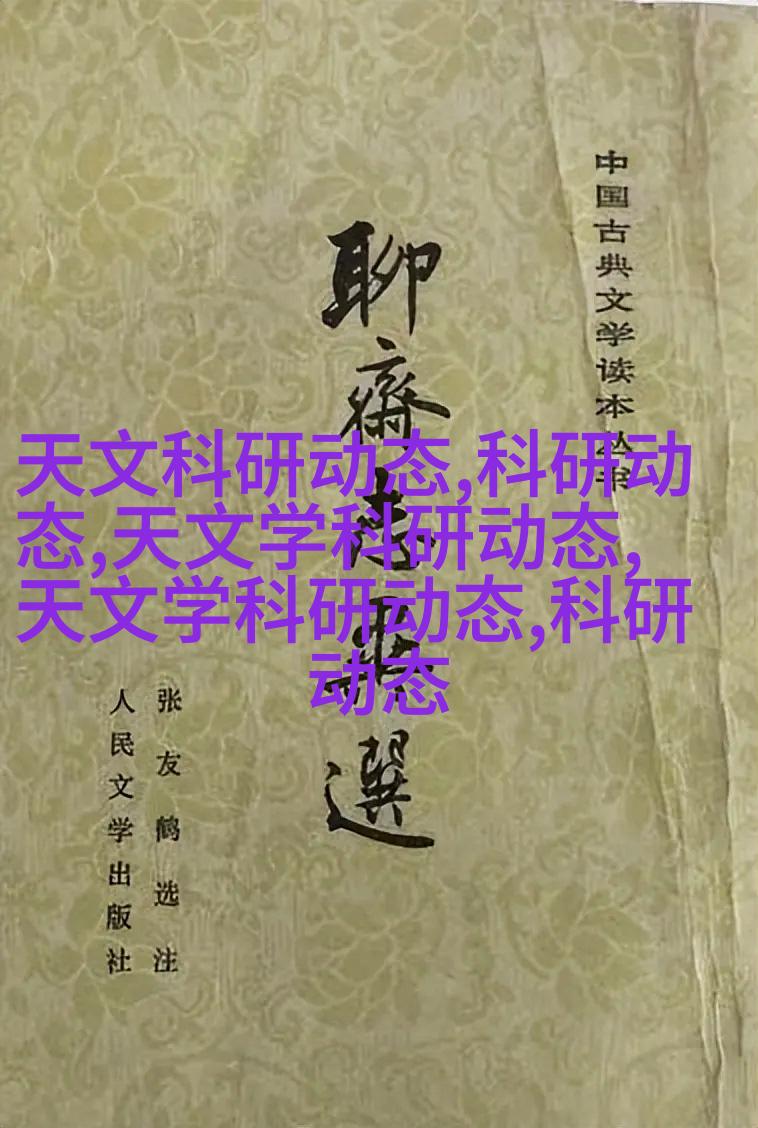 中国古典文学读本丛书
聊斋志异选
张友鹤选注
人民文学出版社
天文科研动态,科研动
态,天文学科研动态,
天文学科研动态,科研
动态